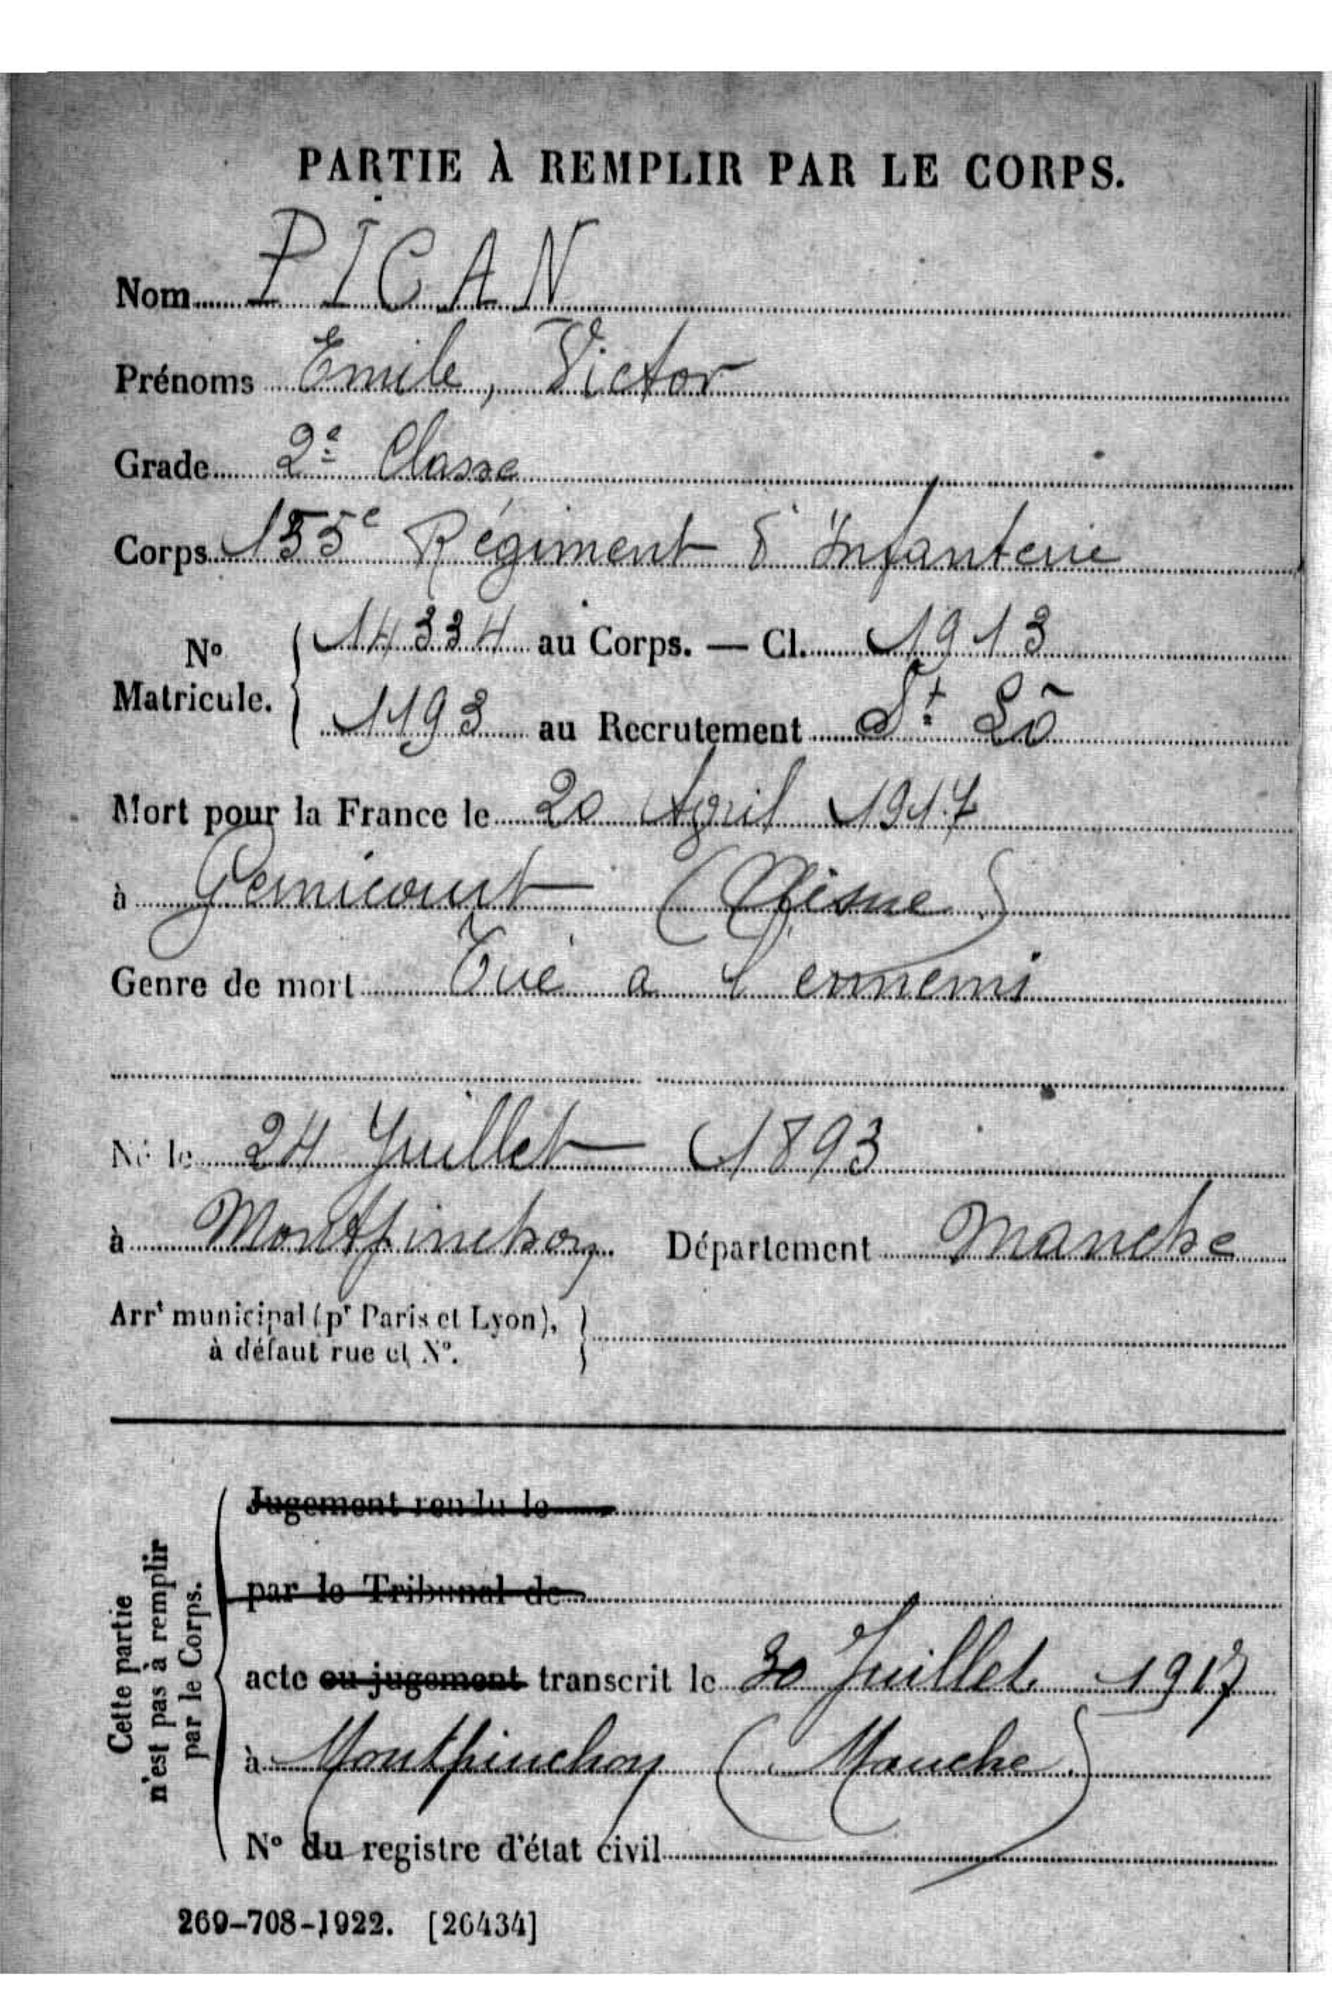 PARTIE À REMPLIR PAR LE CORPS.
Nom PICAN
Prénoms Emile, Victor
Grade 2e Classe
Corps 155e Régiment d'Infanterie
No Matricule. 14334 au Corps. — Cl. 1913
1193 au Recrutement St Lô
Mort pour la France le 20 Avril 1917
à Gernicourt (Aisne)
Genre de mort Tué a l'ennemi
Né le 24 Juillet 1893
à Montpinchon Département Manche
Arrt municipal (pr Paris et Lyon),
à défaut rue et No.
Cette partie
n'est pas à remplir
par le Corps.
Jugement rendu le
par le Tribunal de
acte ou jugement transcrit le 30 Juillet 1917
à Montpinchon (Manche)
No du registre d'état civil
269-708-1922. [26434]